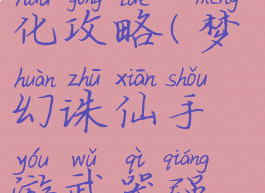 huà gōng lüè mèng
化攻略(梦
huàn zhū xiān shǒu
幻诛仙手
yóu wǔ qì qiáng
游武器强